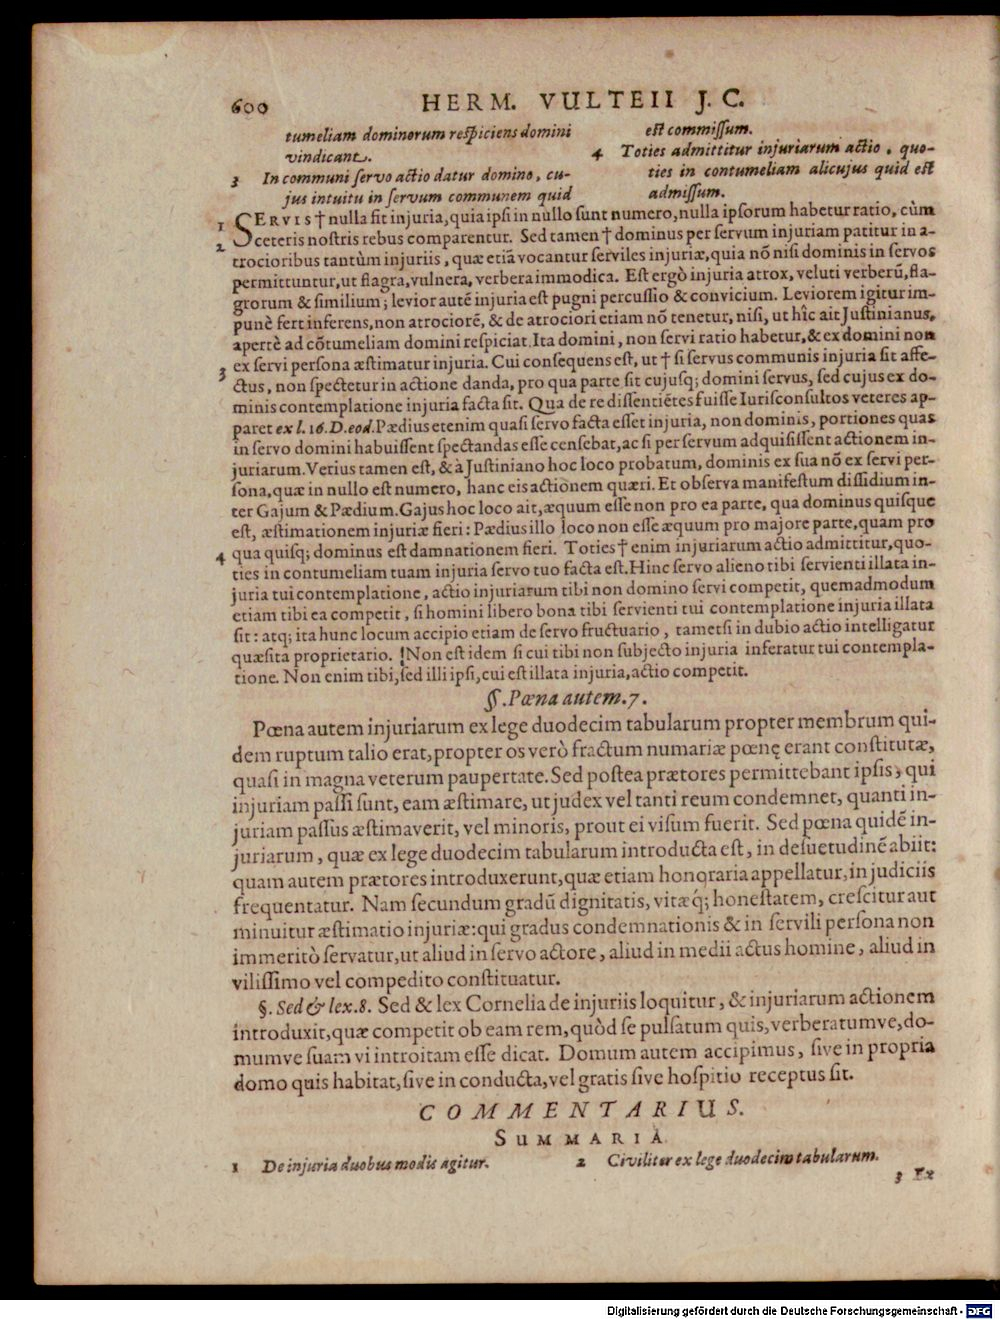 600 HERM. VULTEII J. C.
tumeliam dominorum reſpiciens domini
vindicant.
3 In communi ſervo actio datur domino, cu-
jus intuitu in ſervum communem quid
eſt commiſſum.
4 Toties admittitur injuriarum actio, quo-
ties in contumeliam alicujus quid eſt
admiſſum.
1 SERVIS † nulla fit injuria, quia ipſi in nullo ſunt numero, nulla ipſorum habetur ratio, cùm
2 ceteris noſtris rebus comparentur. Sed tamen † dominus per ſervum injuriam patitur in a-
trocioribus tantùm injuriis, quæ etiã vocantur ſerviles injuriæ, quia nõ niſi dominis in ſervos
permittuntur, ut flagra, vulnera, verbera immodica. Eſt ergò injuria atrox, veluti verberũ, fla-
grorum & ſimilium; levior autẽ injuria eſt pugni percuſſio & convicium. Leviorem igitur im-
punè fert inferens, non atrociorẽ, & de atrociori etiam nõ tenetur, niſi, ut hîc ait Juſtinianus,
apertè ad cõtumeliam domini reſpiciat. Ita domini, non ſervi ratio habetur, & ex domini non
ex ſervi perſona æſtimatur injuria. Cui conſequens eſt, ut † ſi ſervus communis injuria ſit affe-
3 ctus, non ſpectetur in actione danda, pro qua parte ſit cujuſq; domini ſervus, ſed cujus ex do-
minis contemplatione injuria facta ſit. Qua de re diſſentiẽtes fuiſſe Iuriſconſultos veteres ap-
paret ex l. 16. D. eod. Pædius etenim quaſi ſervo facta eſſet injuria, non dominis, portiones quas
in ſervo domini habuiſſent ſpectandas eſſe cenſebat, ac ſi per ſervum adquiſiſſent actionem in-
juriarum. Verius tamen eſt, & à Juſtiniano hoc loco probatum, dominis ex ſua nõ ex ſervi per-
ſona, quæ in nullo eſt numero, hanc eis actionem quæri. Et obſerva manifeſtum diſſidium in-
ter Gajum & Pædium. Gajus hoc loco ait, æquum eſſe non pro ea parte, qua dominus quiſque
eſt, æſtimationem injuriæ fieri: Pædius illo loco non eſſe æquum pro majore parte, quam pro
4 qua quiſq; dominus eſt damnationem fieri. Toties † enim injuriarum actio admittitur, quo-
ties in contumeliam tuam injuria ſervo tuo facta eſt. Hinc ſervo alieno tibi ſervienti illata in-
juria tui contemplatione, actio injuriarum tibi non domino ſervi competit, quemadmodum
etiam tibi ea competit, ſi homini libero bona tibi ſervienti tui contemplatione injuria illata
ſit: atq; ita hunc locum accipio etiam de ſervo fructuario, tametſi in dubio actio intelligatur
quæſita proprietario. Non eſt idem ſi cui tibi non ſubjecto injuria inferatur tui contempla-
tione. Non enim tibi, ſed illi ipſi, cui eſt illata injuria, actio competit.
§. Pœna autem. 7.
Pœna autem injuriarum ex lege duodecim tabularum propter membrum qui-
dem ruptum talio erat, propter os verò fractum numariæ pœnę erant conſtitutæ,
quaſi in magna veterum paupertate. Sed poſtea prætores permittebant ipſis, qui
injuriam paſſi ſunt, eam æſtimare, ut judex vel tanti reum condemnet, quanti in-
juriam paſſus æſtimaverit, vel minoris, prout ei viſum fuerit. Sed pœna quidẽ in-
juriarum, quæ ex lege duodecim tabularum introducta eſt, in deſuetudinẽ abiit:
quam autem prætores introduxerunt, quæ etiam honoraria appellatur, in judiciis
frequentatur. Nam ſecundum gradũ dignitatis, vitæq́; honeſtatem, creſcitur aut
minuitur æſtimatio injuriæ: qui gradus condemnationis & in ſervili perſona non
immeritò ſervatur, ut aliud in ſervo actore, aliud in medii actus homine, aliud in
viliſſimo vel compedito conſtituatur.
§. Sed & lex. 8. Sed & lex Cornelia de injuriis loquitur, & injuriarum actionem
introduxit, quæ competit ob eam rem, quòd ſe pulſatum quis, verberatumve, do-
mumve ſuam vi introitam eſſe dicat. Domum autem accipimus, ſive in propria
domo quis habitat, ſive in conducta, vel gratis ſive hoſpitio receptus ſit.
COMMENTARIUS.
SUMMARIA
1 De injuria duobus modis agitur.
2 Civiliter ex lege duodecim tabularum.
3 Ex
Digitalisierung gefördert durch die Deutsche Forschungsgemeinschaft - DFG